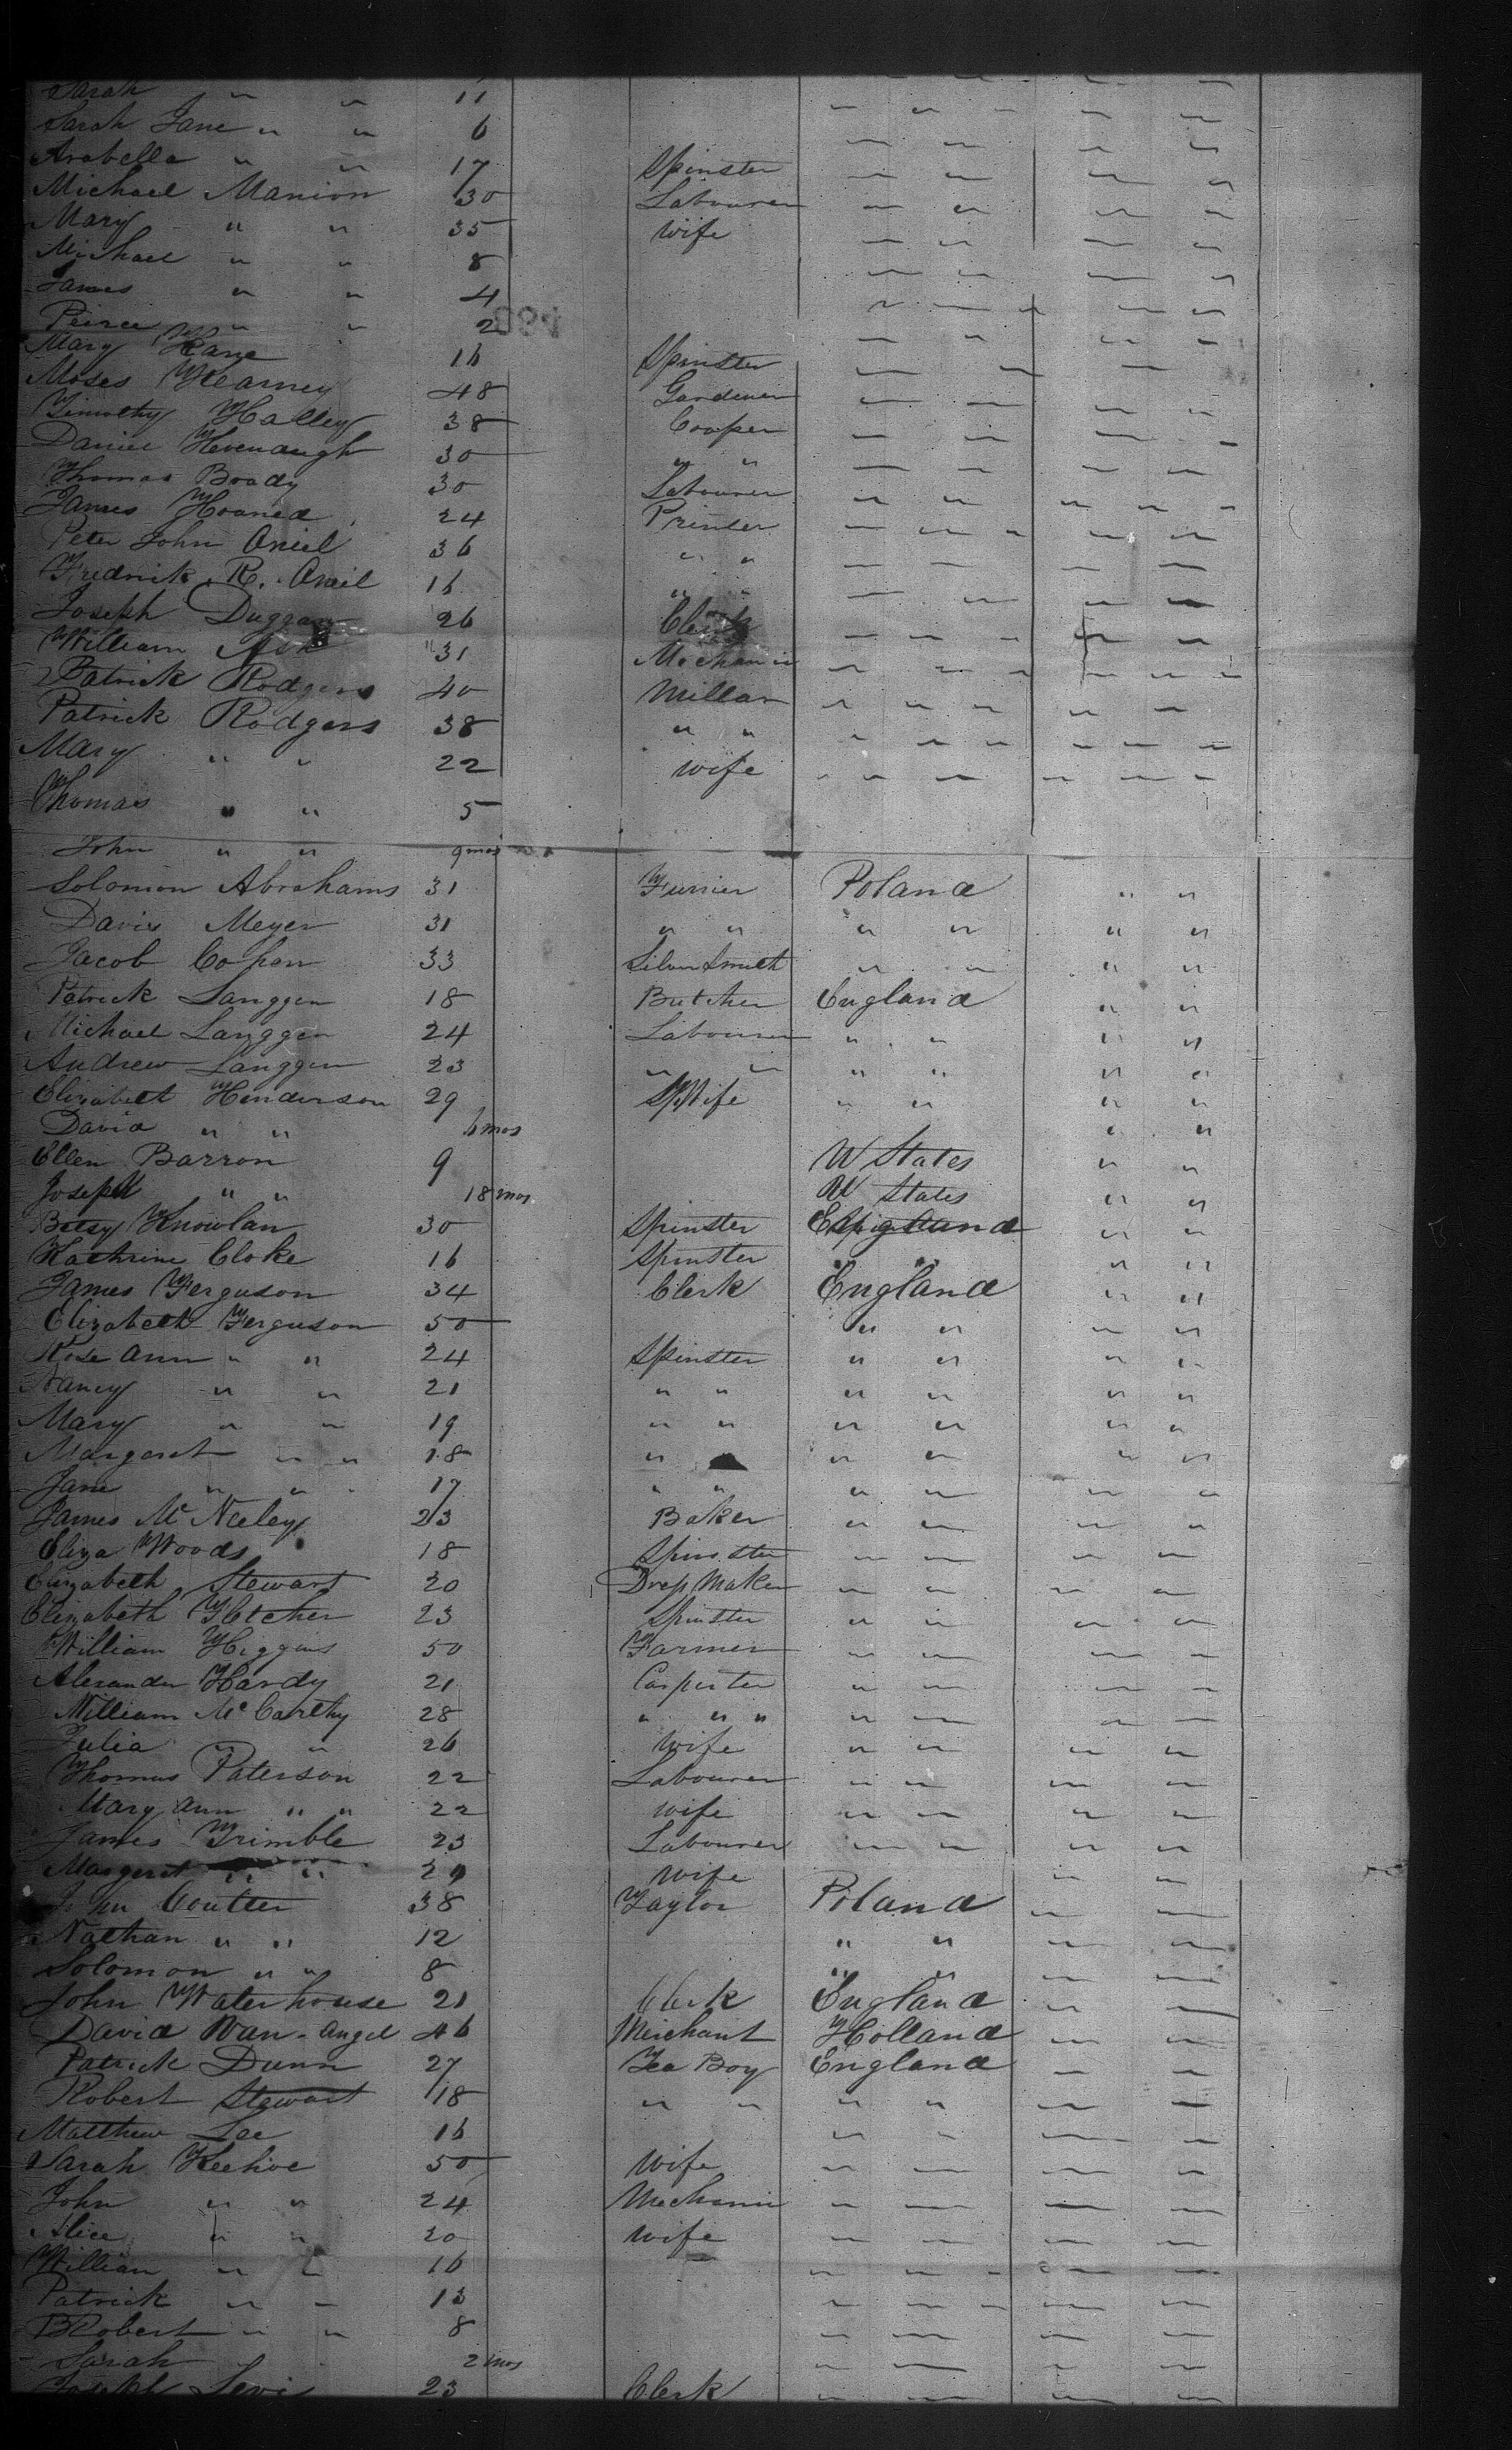 Sarah " " 11
Sarah Jane " " 6
Arabella " " 17 Spinster
Michael Manion 30 Labourer
Mary " " 35 Wife
Michael " " 8
James " " 4
Peirce " " 2
Mary Kane 16 Spinster
Moses Kearney 48 Gardener
Timothy Halley 38 Cooper
Daniel Hevenaugh 30 " "
Thomas Brady 30 Labourer
James 24 Printer
Peter John Oneil 36 " "
Fredrick R. Oneil 16 " "
Joseph Duggan 26 Clerk
William Ash 31 Mechanic
Patrick Rodgers 40 Millar
Patrick Rodgers 38 " "
Mary " " 22 wife
Thomas " " 5
John " " 9 mos
Solomon Abrahams 31 Furrier Poland " "
Davis Meyer 31 " " " " " "
Jacob Cohen 33 Silver Smith " " " "
Patrick Langgen 18 Butcher England " "
Michael Langgen 24 Labourer " " " "
Andrew Langgen 23 " " " " " "
Elizabeth Henderson 29 Wife " " " "
David " " 6 mos " "
Ellen Barron 9 U States " "
Joseph " " 18 mos U States " "
Betsy Knowlan 30 Spinster England " "
Kathrine Cloke 16 Spinster " " " "
James Ferguson 34 Clerk England " "
Elizabeth Ferguson 50 " " " "
Rose Ann " " 24 Spinster " " " "
Nancy " " 21 " " " " " "
Mary " " 19 " " " " " "
Margaret " " 18 " " " " "
Jane " " 17 " " " " " "
James McNeeley 23 Baker " " " "
Eliza Woods 18 Spinster " " " "
Elizabeth Stewart 20 Dress Maker " " " "
Elizabeth Fletcher 23 Spinster " " " "
William Higgins 50 Farmer " " " "
Alexander Hardy 21 Carpenter " " " "
William McCarthy 28 " " " " " " "
Julia " " 26 Wife " " " "
Thomas Paterson 22 Labourer " " " "
Mary Ann " " 22 wife " " " "
James Trimble 23 Labourer " " " "
Margeret " " wife " "
John Coulter 38 Taylor Poland " "
Nathan " " 12 " " " "
Solomon " " 8 " " " "
John Waterhouse 21 Clerk England " "
David Van-Angel 46 Merchant Holland " "
Patrick Dunn 27 Tea Boy England " "
Robert Stewart 18 " " " " " "
Matthew Lee 16 " " " "
Sarah Keehoe 50 Wife " " " "
John " " 24 Mechanic " " " "
Alice " " 20 Wife " " " "
William " " 16
Patrick " " 13
Robert " " 8
Sarah 2 mos
Joseph Levi 23 Clerk